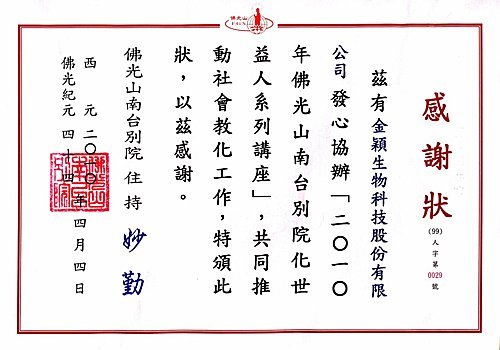 佛光山
感謝狀
(99)
人字第
0029
號
茲有金穎生物科技股份有限
公司 發心協辦「二〇一〇
年佛光山南台別院化世
益人系列講座」，共同推
動社會教化工作，特頒此
狀，以茲感謝。
佛光山南台別院 住持 妙勤
西元 二〇一〇
佛光紀元 四十四
年四月四日